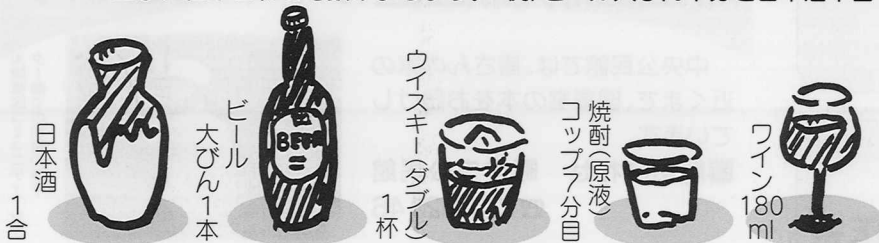 日本酒
1合
ビール
大びん1本
BEER
ウイスキー(ダブル)
1杯
焼酎(原液)
コップ7分目
ワイン
180
ml